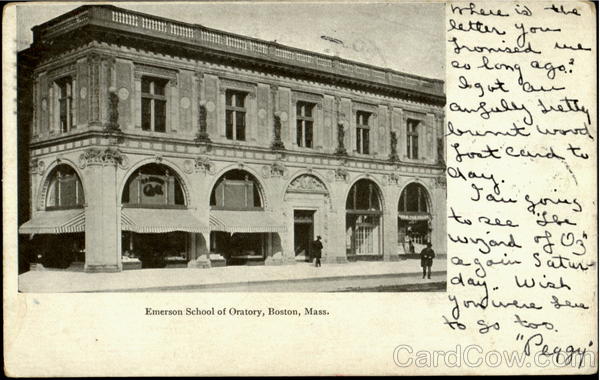 Where is the
letter you
promised me
so long ago?
I got an
awfully pretty
burnt wood
post card to
day.
I am going
to see "The
wizard of Oz"
again Satur-
day. Wish
you were here
to go too.
"Peggy"
Emerson School of Oratory, Boston, Mass.
CardCow.com